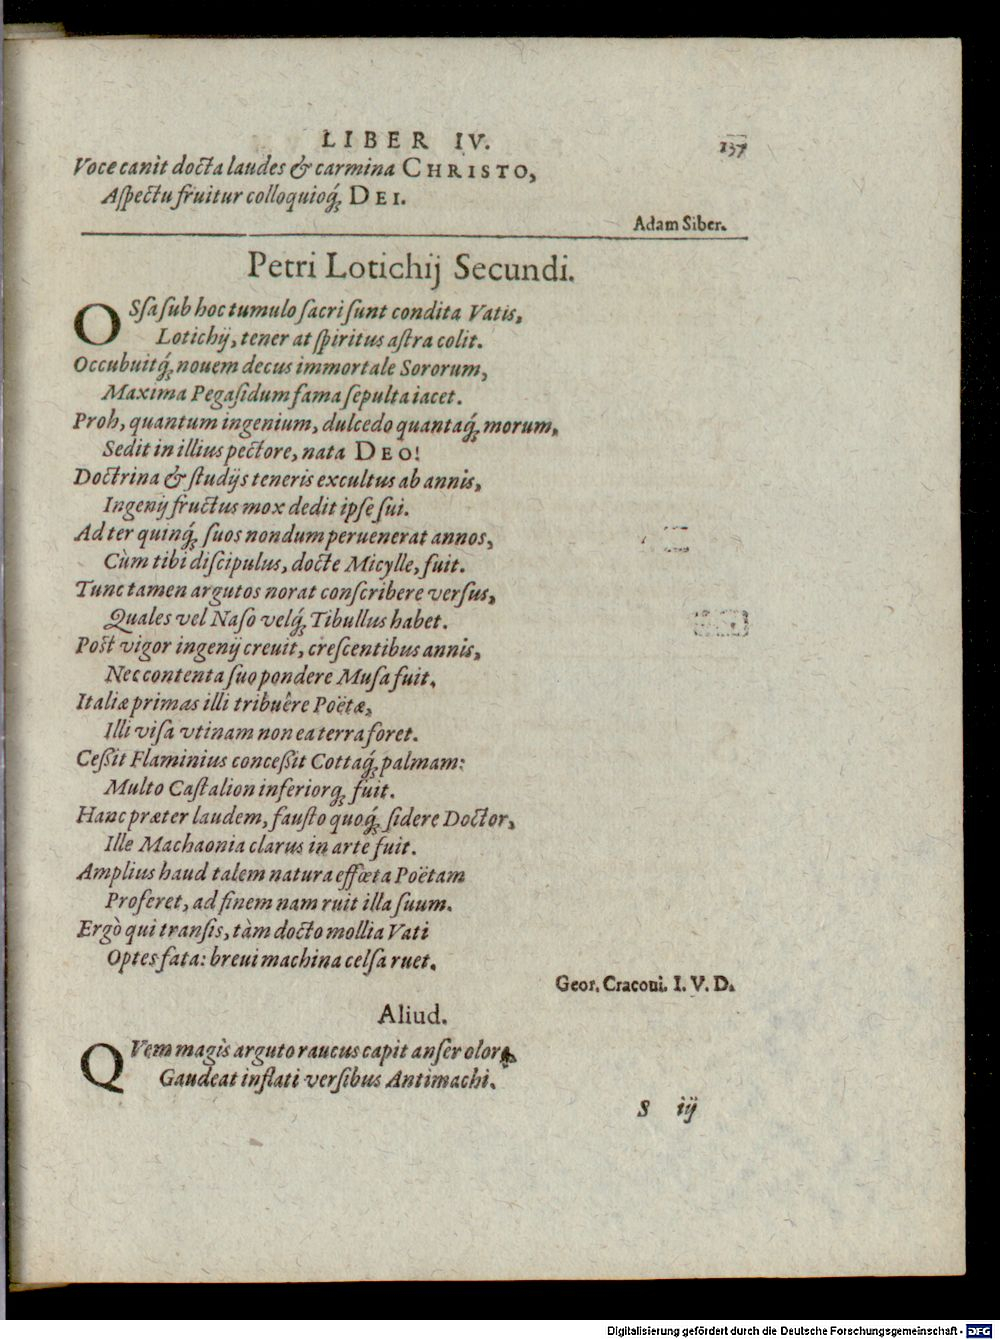 LIBER IV. 137
Voce canit docta laudes & carmina CHRISTO,
Aſpectu fruitur colloquioq́; DEI.
Adam Siber.
Petri Lotichij Secundi.
OSſa ſub hoc tumulo ſacri ſunt condita Vatis,
Lotichij, tener at ſpiritus aſtra colit.
Occubuitq́; nouem decus immortale Sororum,
Maxima Pegaſidum fama ſepulta iacet.
Proh, quantum ingenium, dulcedo quantaq́; morum,
Sedit in illius pectore, nata DEO!
Doctrina & ſtudijs teneris excultus ab annis,
Ingenij fructus mox dedit ipſe ſui.
Ad ter quinq́; ſuos nondum peruenerat annos,
Cùm tibi diſcipulus, docte Micylle, fuit.
Tunc tamen argutos norat conſcribere verſus,
Quales vel Naſo velq́; Tibullus habet.
Poſt vigor ingenij creuit, creſcentibus annis,
Nec contenta ſuo pondere Muſa fuit.
Italiæ primas illi tribuêre Poëtæ,
Illi viſa vtinam non ea terra foret.
Ceßit Flaminius conceßit Cottaq́; palmam:
Multo Caſtalion inferiorq; fuit.
Hanc præter laudem, fauſto quoq́; ſidere Doctor,
Ille Machaonia clarus in arte fuit.
Amplius haud talem natura effœta Poëtam
Proferet, ad finem nam ruit illa ſuum.
Ergò qui tranſis, tàm docto mollia Vati
Optes fata: breui machina celſa ruet.
Geor. Cracoui. I. V. D.
Aliud.
QVem magis arguto raucus capit anſer olore,
Gaudeat inflati verſibus Antimachi.
S iij
Digitalisierung gefördert durch die Deutsche Forschungsgemeinschaft - DFG